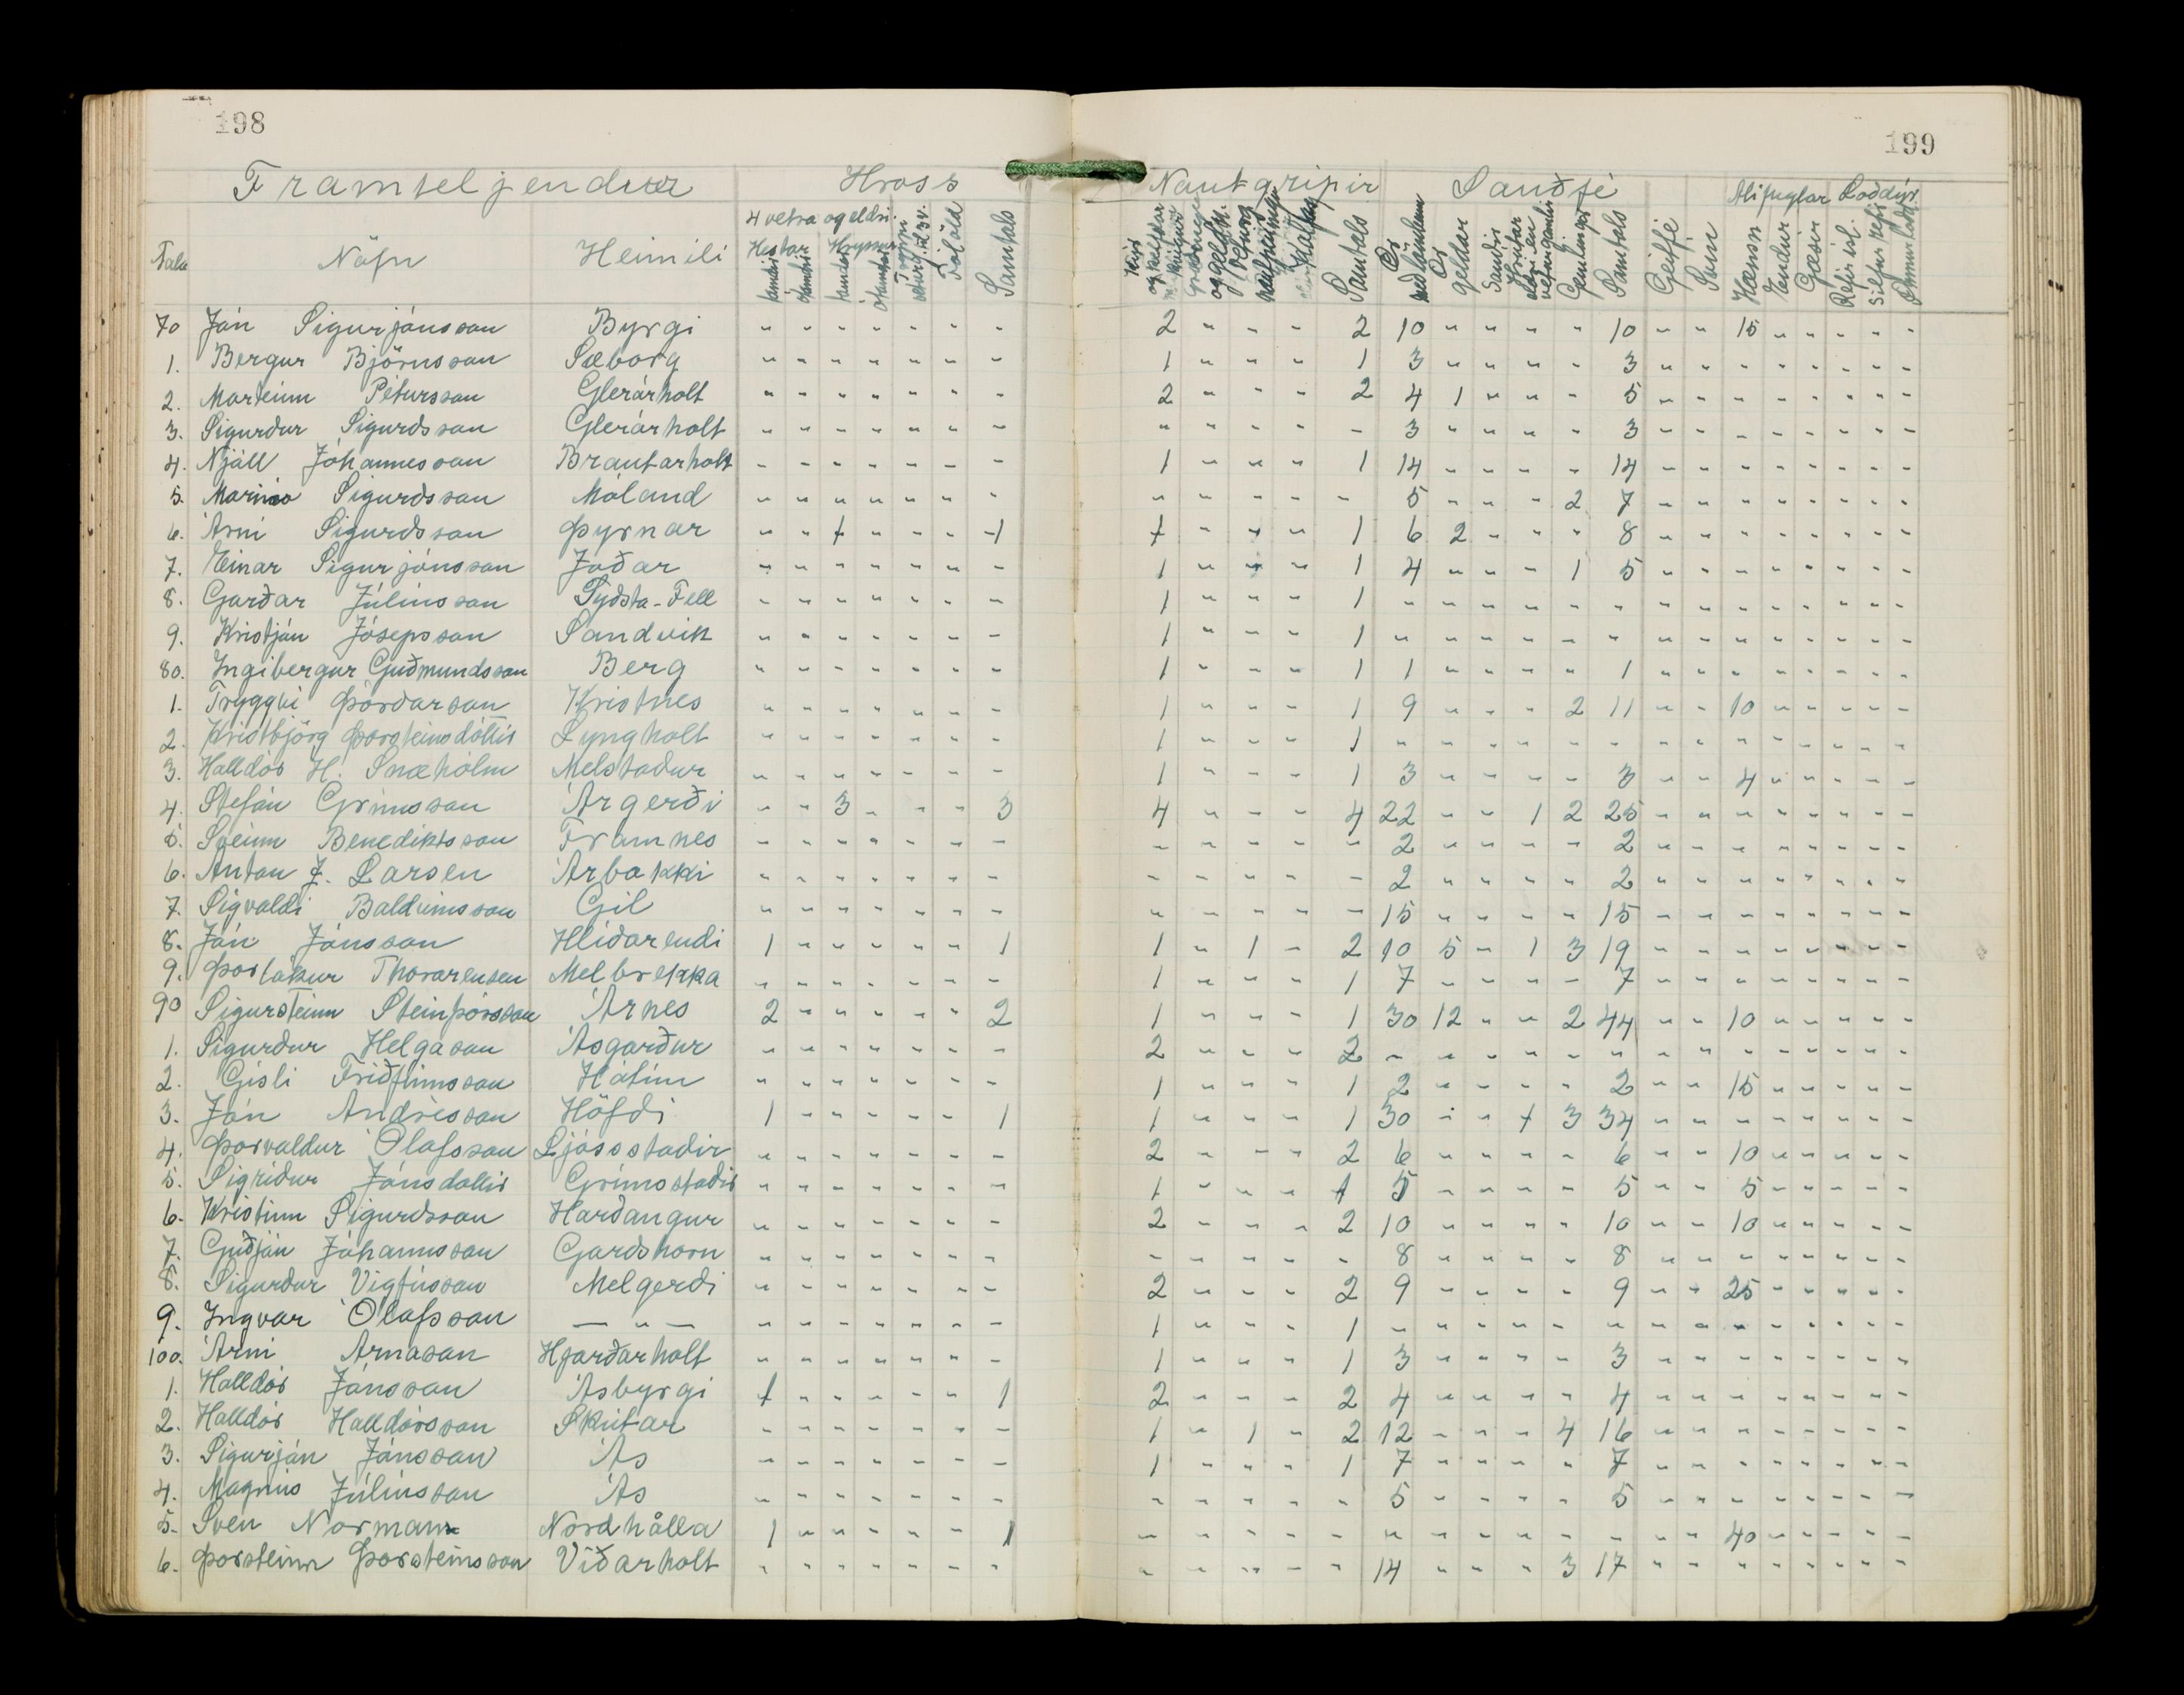 198
199
Framteljendur Hross Nautgripir Sauðfé Alifuglar Loðdýr
4 vetra og eldri.
Tala Nöfn Heimili Hestar Hryssur Folöld Samtals Samtals Ær með lömbum Ær geldar Sauðir Gemlingar Samtals Geitfé Svín Hænsn Endur Gæsir
70 Jón Sigurjónsson Byrgi " " " " " " - 2 " - - 2 10 " " " " 10 - " 15 - - - - -
1. Bergur Björnsson Sæborg " " " " " " - 1 " " " 1 3 " " " - 3 - " - - - - - -
2. Marteinn Pétursson Glerárholt " - - - - - - 2 " - - 2 4 1 " " - 5 - - - - - - - -
3. Sigurdur Sigurdsson Glerárholt - - - - - - - " - - - - 3 " " " - 3 - - - - - - - -
4. Njáll Jóhannesson Brautarholt - - - - - - - 1 - " " 1 14 - - - - 14 - - - - - - - -
5. Marinó Sigurdsson Móland - - " " " " - " - - - - 5 - - - 2 7 - - - - - - - -
6. Árni Sigurdsson Þyrnar - - 1 - - - 1 1 - - " 1 6 2 - - - 8 - - - - - - - -
7. Einar Sigurjónsson Jaðar - - - - - - - 1 - - " 1 4 - - - 1 5 - - - - - - - -
8. Garðar Júlíusson Sydsta-Fell - - - " - - - 1 " - - 1 - - - - - - - - - - - - - -
9. Kristján Jósepsson Sandvik - - - - - - - 1 " - - 1 - - - - - - - - - - - - - -
80. Ingibergur Guðmundsson Berg - - - - - - - 1 - - - 1 1 - - - - 1 - - - - - - - -
1. Tryggvi Þórdarson Kristnes - - - - - - - 1 - - - 1 9 - - - 2 11 - - 10 - - - - -
2. Kristbjörg Þorsteinsdóttir Lyngholt - - - - - - - 1 - - - 1 - - - - - - - - - - - - - -
3. Halldór H. Snæhólm Melstadur - - - - - - - 1 - - - 1 3 - - - - 3 - - 4 - - - - -
4. Stefán Grímsson Árgerði - - 3 - - - 3 4 - - - 4 22 - - 1 2 25 - - - - - - - -
5. Sveinn Benediktsson Framnes - - - - - - - - - - - - 2 - - - - 2 - - - - - - - -
6. Anton J. Larsen Árbakki - - - - - - - - - - - - 2 - - - - 2 - - - - - - - -
7. Sigvaldi Baldvinsson Gil - - - - - - - - - - - - 15 - - - - 15 - - - - - - - -
8. Jón Jónsson Hlidarendi 1 - - - - - 1 1 - 1 - 2 10 5 - 1 3 19 - - - - - - - -
9. Þorlákur Thorarensen Melbrekka - - - - - - - 1 - - - 1 7 - - - - 7 - - - - - - - -
90 Sigursteinn Steinþórsson Árnes 2 - - - - - 2 1 - - - 1 30 12 - - 2 44 - - 10 - - - - -
1. Sigurdur Helgason Ásgarður - - - - - - - 2 - - - 2 - - - - - - - - - - - - - -
2. Gísli Friðfinnsson Hátún - - - - - - - 1 - - - 1 2 - - - - 2 - - 15 - - - - -
3. Jón Andrésson Höfdi 1 - - - - - 1 1 - - - 1 30 - - 1 3 34 - - - - - - - -
4. Þorvaldur Ólafsson Ljósstadir - - - - - - - 2 - - - 2 6 - - - - 6 - - 10 - - - - -
5. Sigridur Jónsdóttir Grímsstadir - - - - - - - 1 - - - 1 5 - - - - 5 - - 5 - - - - -
6. Kristinn Sigurdsson Hardangur - - - - - - - 2 - - - 2 10 - - - - 10 - - 10 - - - - -
7. Guðjón Jóhannsson Gardshorn - - - - - - - - - - - - 8 - - - - 8 - - - - - - - -
8. Sigurdur Vigfússon Melgerdi - - - - - - - 2 - - - 2 9 - - - - 9 - - 25 - - - - -
9. Ingvar Ólafsson — " — - - - - - - - 1 - - - 1 - - - - - - - - - - - - - -
100. Árni Árnason Hjarðarholt - - - - - - - 1 - - - 1 3 - - - - 3 - - - - - - - -
1. Halldór Jónsson Ásbyrgi 1 - - - - - 1 2 - - - 2 4 - - - - 4 - - - - - - - -
2. Halldór Halldórsson Skútar - - - - - - - 1 - 1 - 2 12 - - - 4 16 - - - - - - - -
3. Sigurjón Jónsson Ás - - - - - - - 1 - - - 1 7 - - - - 7 - - - - - - - -
4. Magnús Júlíusson Ás - - - - - - - - - - - - 5 - - - - 5 - - - - - - - -
5. Sven Norman Nordhålla 1 - - - - - 1 - - - - - - - - - - - - - 40 - - - - -
6. Þorsteinn Þorsteinsson Víðarholt - - - - - - - - - - - - 14 - - - 3 17 - - - - - - - -